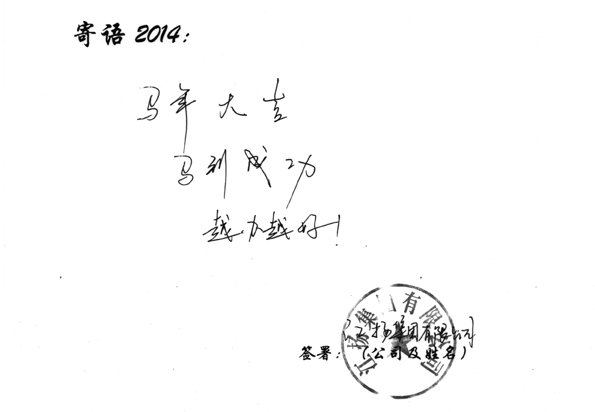 寄语 2014:
马年大吉
马到成功
越办越好!
江扬集团有限公司
江扬集团有限公司
签署:(公司及姓名)